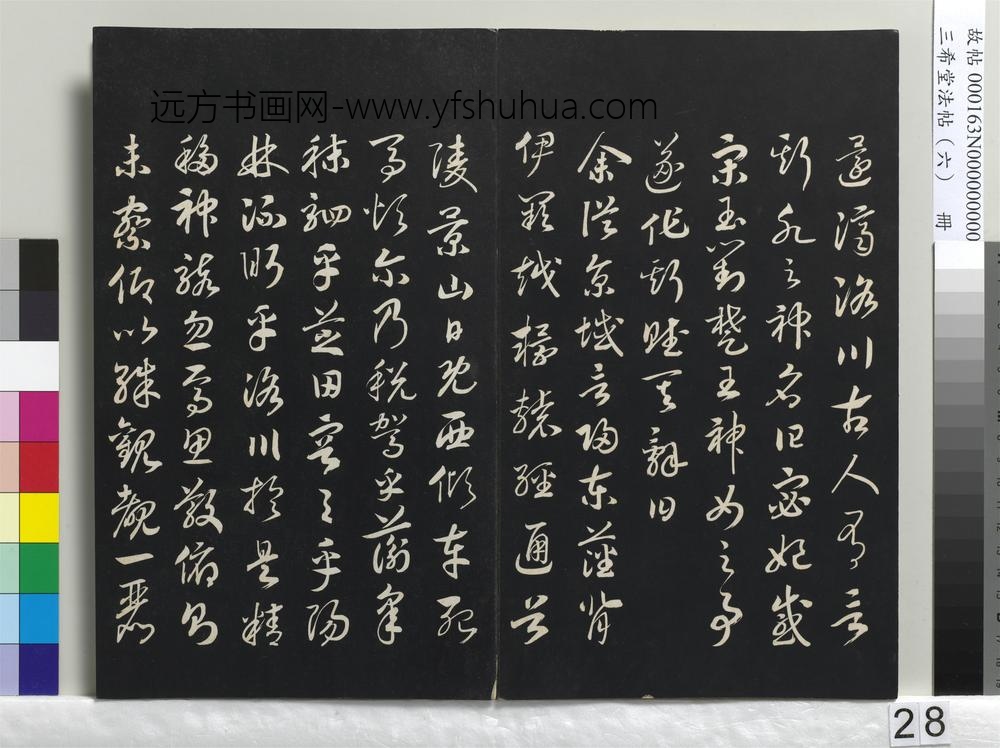 故帖 000163N000000000
三希堂法帖（六） 冊
远方书画网-www.yfshuhua.com
還濟洛川古人有言
斯水之神名曰宓妃感
宋玉對楚王神女之事
遂作斯賦其辭曰
余從京域言歸東藩背
伊闕越轘轅經通谷
陵景山日既西傾車殆
馬煩尒乃稅駕乎蘅皋
秣駟乎芝田容與乎陽
林流眄乎洛川於是精
移神駭忽焉思散俯則
未察仰以殊觀覩一麗
28